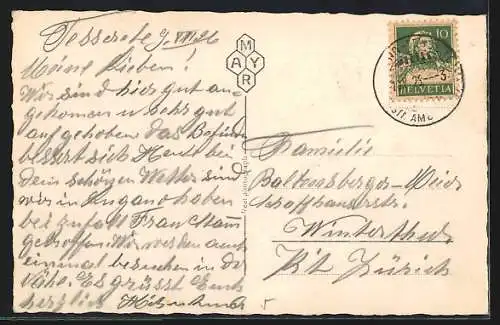 Tesserete 9. VIII 26
Meine Lieben!
Wir sind hier gut an-
gekommen u. sehr gut
aufgehoben das Befinden
bessert sich Heute bei
dem schönen Wetter sind
wir in Lugano haben
bei zufall Frau Stam
getroffen. Wir werden auch
einmal besuchen in der
Nähe. Es grüsst Euch
herzlich
MAYR
10
HELVETIA
Familie
Baltensberger-Meier
Schaffhauserstr.
Winterthur
Kt. Zürich
5